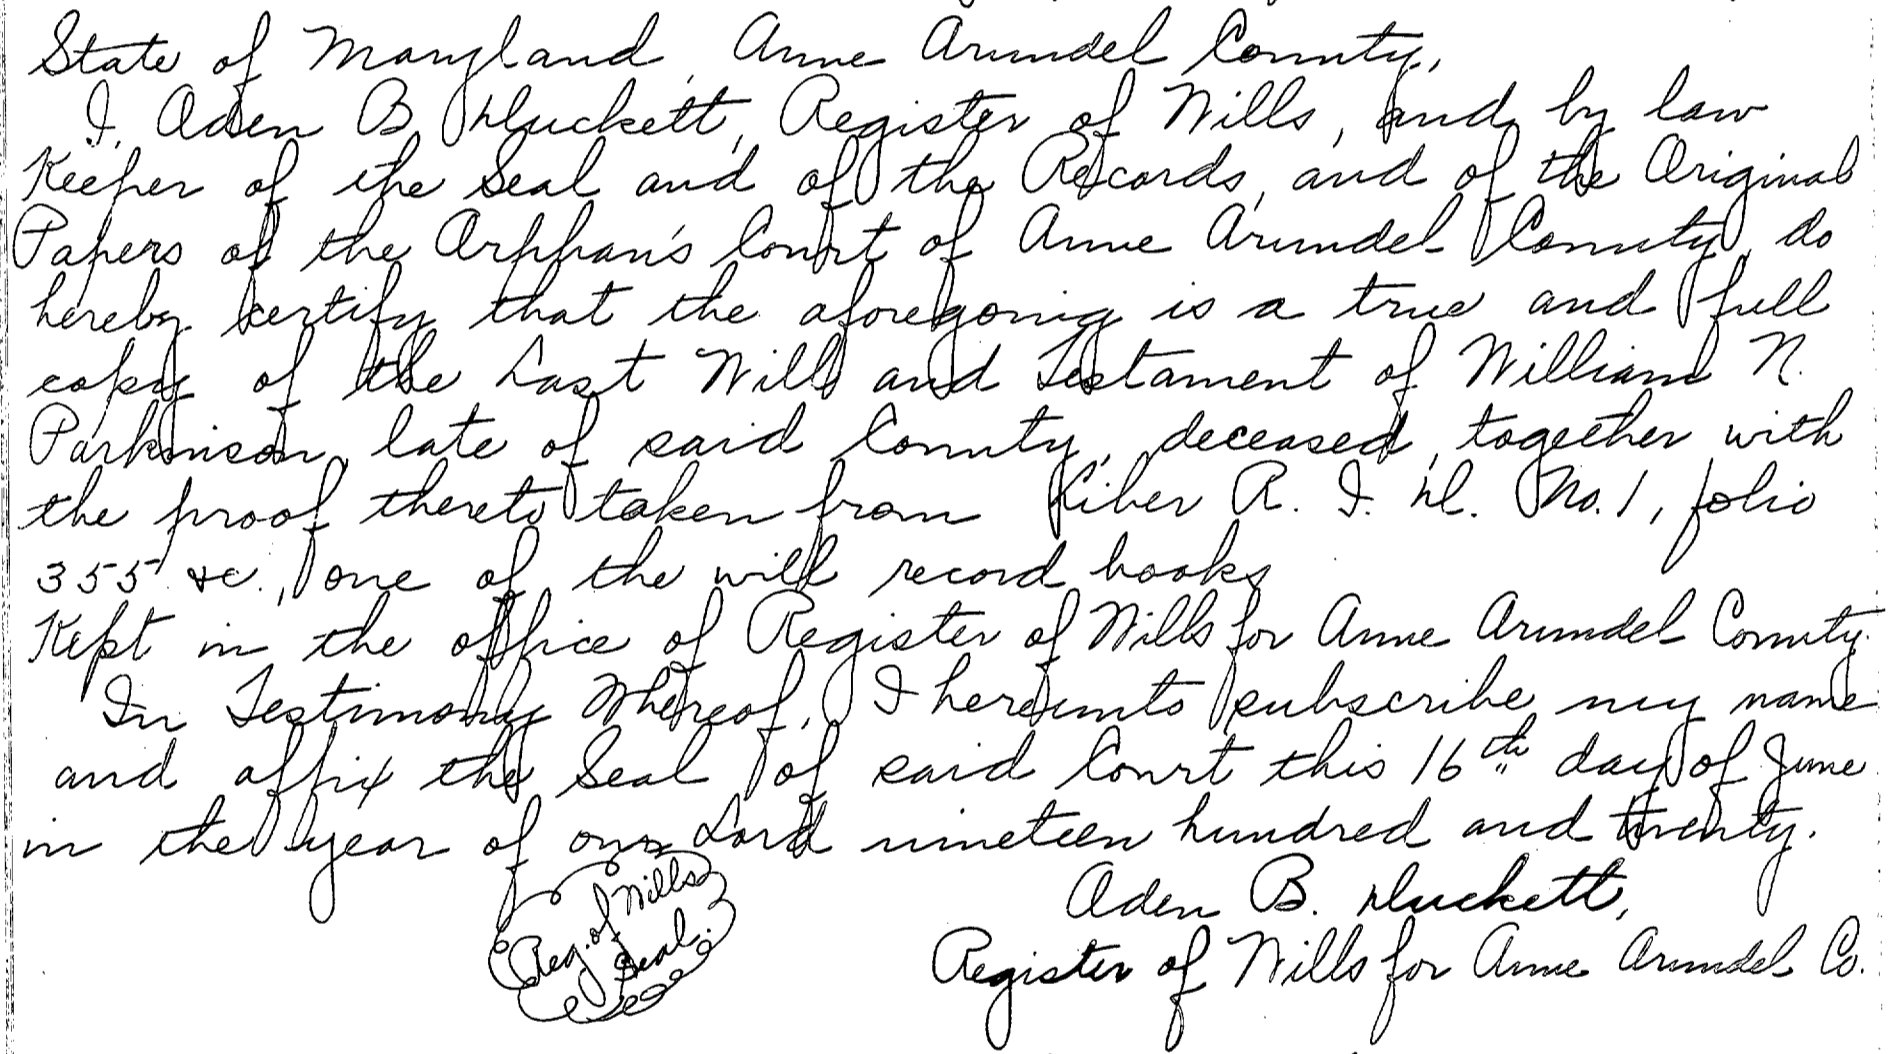 State of Maryland, Anne Arundel County,
I, Aden B. Duckett, Register of Wills, and by law
Keeper of the Seal and of the Records, and of the Original
Papers of the Orphan's Court of Anne Arundel County, do
hereby certify that the aforegoing is a true and full
copy of the Last Will and Testament of William N.
Parkinson, late of said County, deceased, together with
the proof thereto taken from Liber R. I. D. No. 1, folio
355 &c., one of the will record books
Kept in the office of Register of Wills for Anne Arundel County.
In Testimony Whereof, I hereunto subscribe my name
and affix the Seal of said Court this 16th day of June
in the year of our Lord nineteen hundred and twenty.
Aden B. Duckett,
Reg. of Wills
Seal.
Register of Wills for Anne Arundel Co.